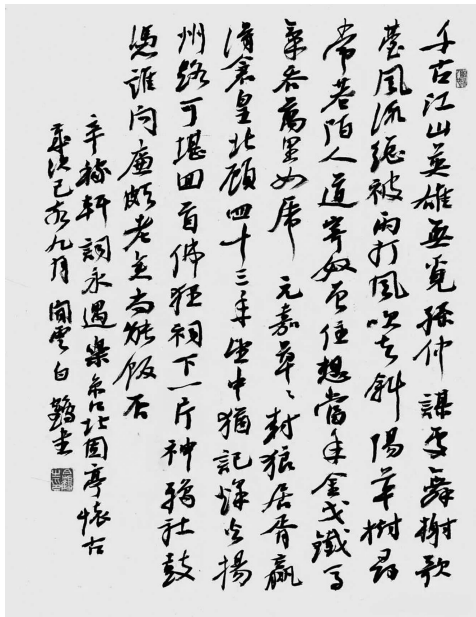 千古江山英雄無覓孫仲謀處舞榭歌
臺風流總被雨打風吹去斜陽草樹尋
常巷陌人道寄奴曾住想當年金戈鐵馬
氣吞萬里如虎 元嘉草〻封狼居胥贏
得倉皇北顧四十三年望中猶記烽火揚
州路可堪回首佛狸祠下一片神鴉社鼓
憑誰問廉頗老矣尚能飯否
辛稼軒詞永遇樂京口北固亭懷古
歲次己亥九月 閒雲白鶴書